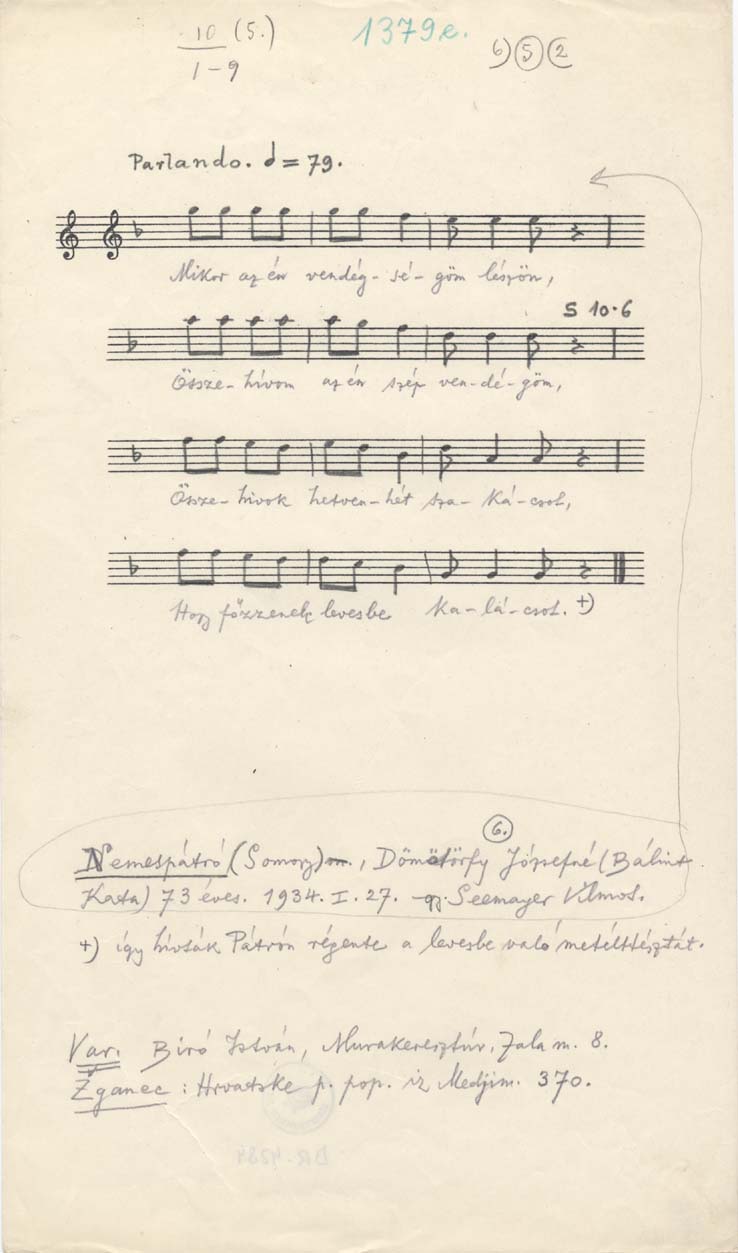 10 (5.) 1379e. 6) 5 2
1-9
Parlando. = 79.
Mikor az én vendég-sé-göm lészön,
S 10·6
Össze-hívom az én szép ven-dé-göm,
Össze-hivok hetven-hét sza-ká-csot,
Hogy főzzenek levesbe ka-lá-csot. +)
6.
Nemespátró (Somogy) m., Dömötörfy Józsefné (Bálint
Kata) 73 éves. 1934. I. 27. gy. Seemayer Vilmos.
+) így hívták Pátrón régente a levesbe való metélttésztát.
Var. Biró István, Murakeresztúr, Zala m. 8.
Žganec: Hrvatske p. pop. iz Medjim. 370.